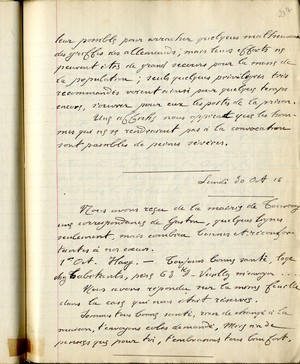 leur possible pour arracher quelques malheureux
des griffes des allemands, mais leurs efforts ne
peuvent être de grand secours pour la masse de
la population; seuls quelques privilégiés très
recommandés voient ainsi pour quelque temps
encore, s'ouvrir pour eux les portes de la prison.
Une affiche nous apprend que les hom-
mes qui ne se rendraient pas à la convocation
sont passibles de peines sévères.
Lundi 30 Oct 16
Nous avons reçu de la mairie de
une correspondance de Gaston, quelques lignes
seulement, mais combien bonnes et réconfor-
tantes à nos cœurs.
1er Oct. Haag. — Toujours bonne santé, loge
chez
Nous avons répondu sur la même feuille
dans la case qui nous était réservée.
Sommes tous bonne santé, rien de changé à la
maison, t'envoyons colis demandé,
pensons que pour toi, t'embrassons tous bien fort.